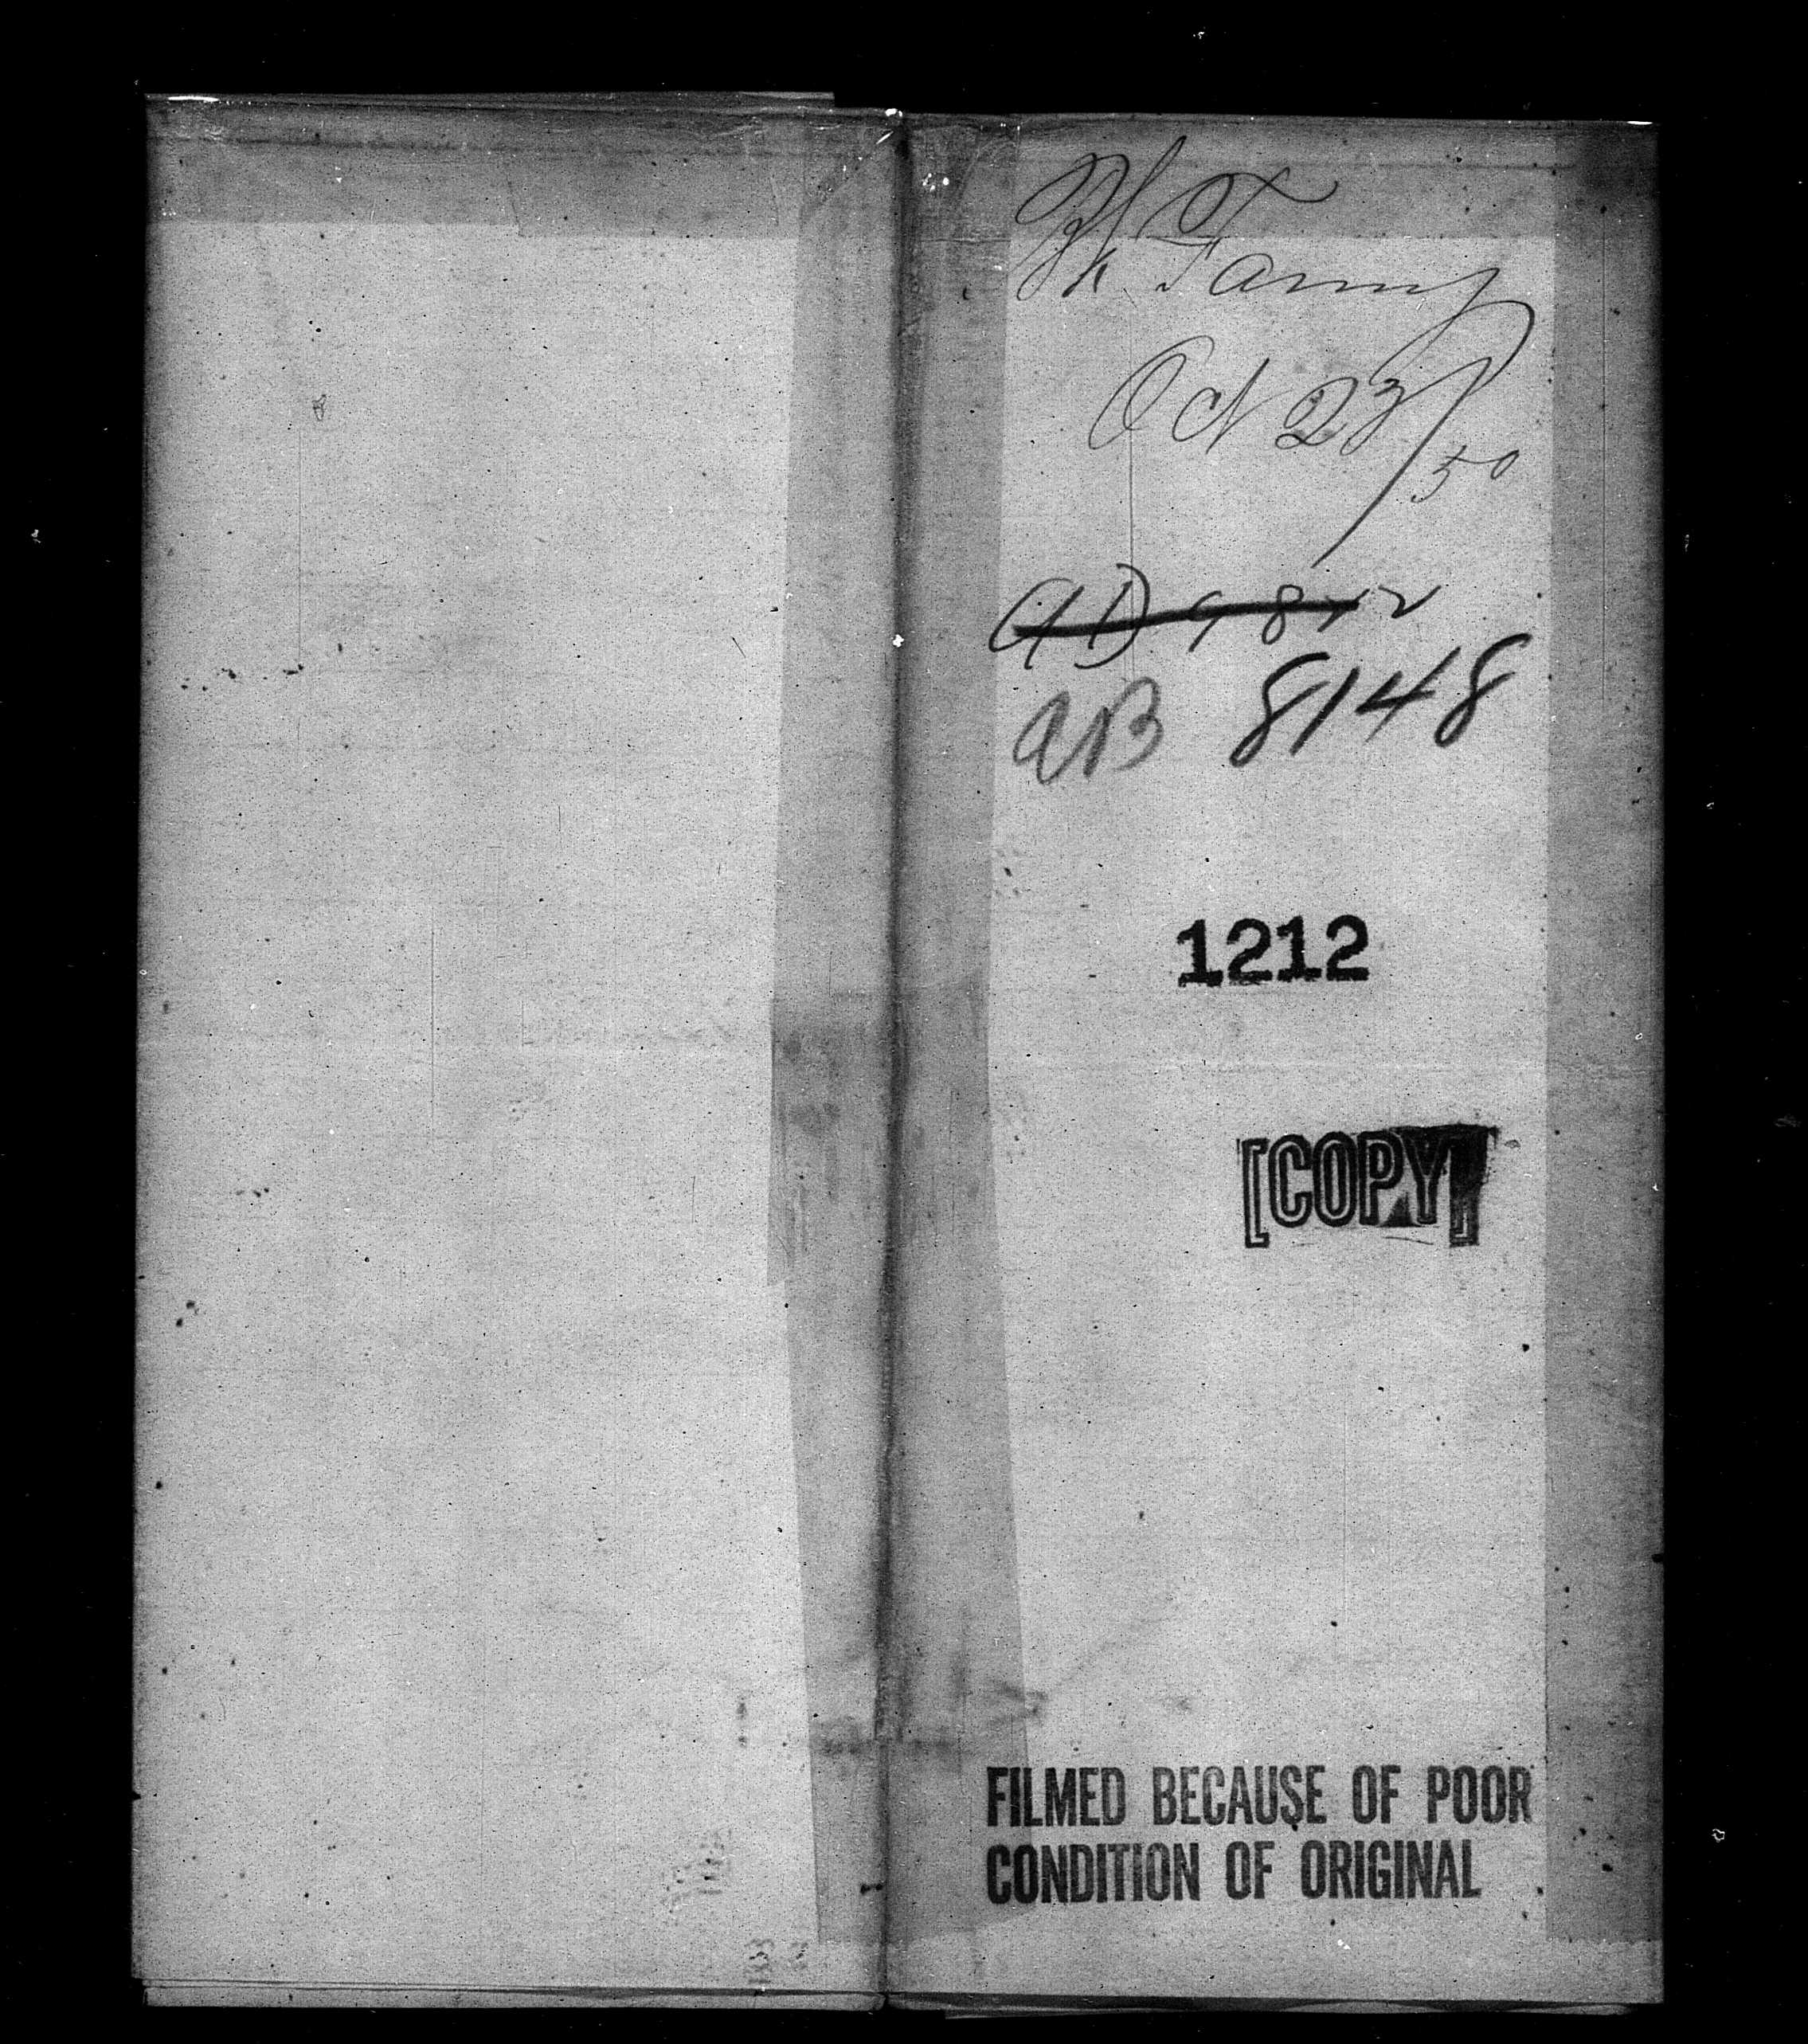 Bk Fanny
Oct 23/50
AD 9812
AB 8148
1212
[COPY]
FILMED BECAUSE OF POOR
CONDITION OF ORIGINAL